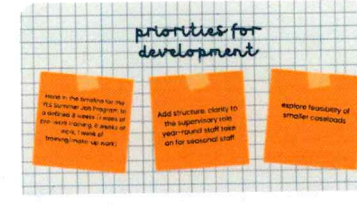 priorities for
development
Hone in the timeline for the
YLS Summer Job Program to
a defined 8 weeks (1 week of
pre-work training, 6 weeks of
work, 1 week of
training/make-up work)
Add structure, clarity to
the supervisory role
year-round staff take
on for seasonal staff
explore feasibility of
smaller caseloads